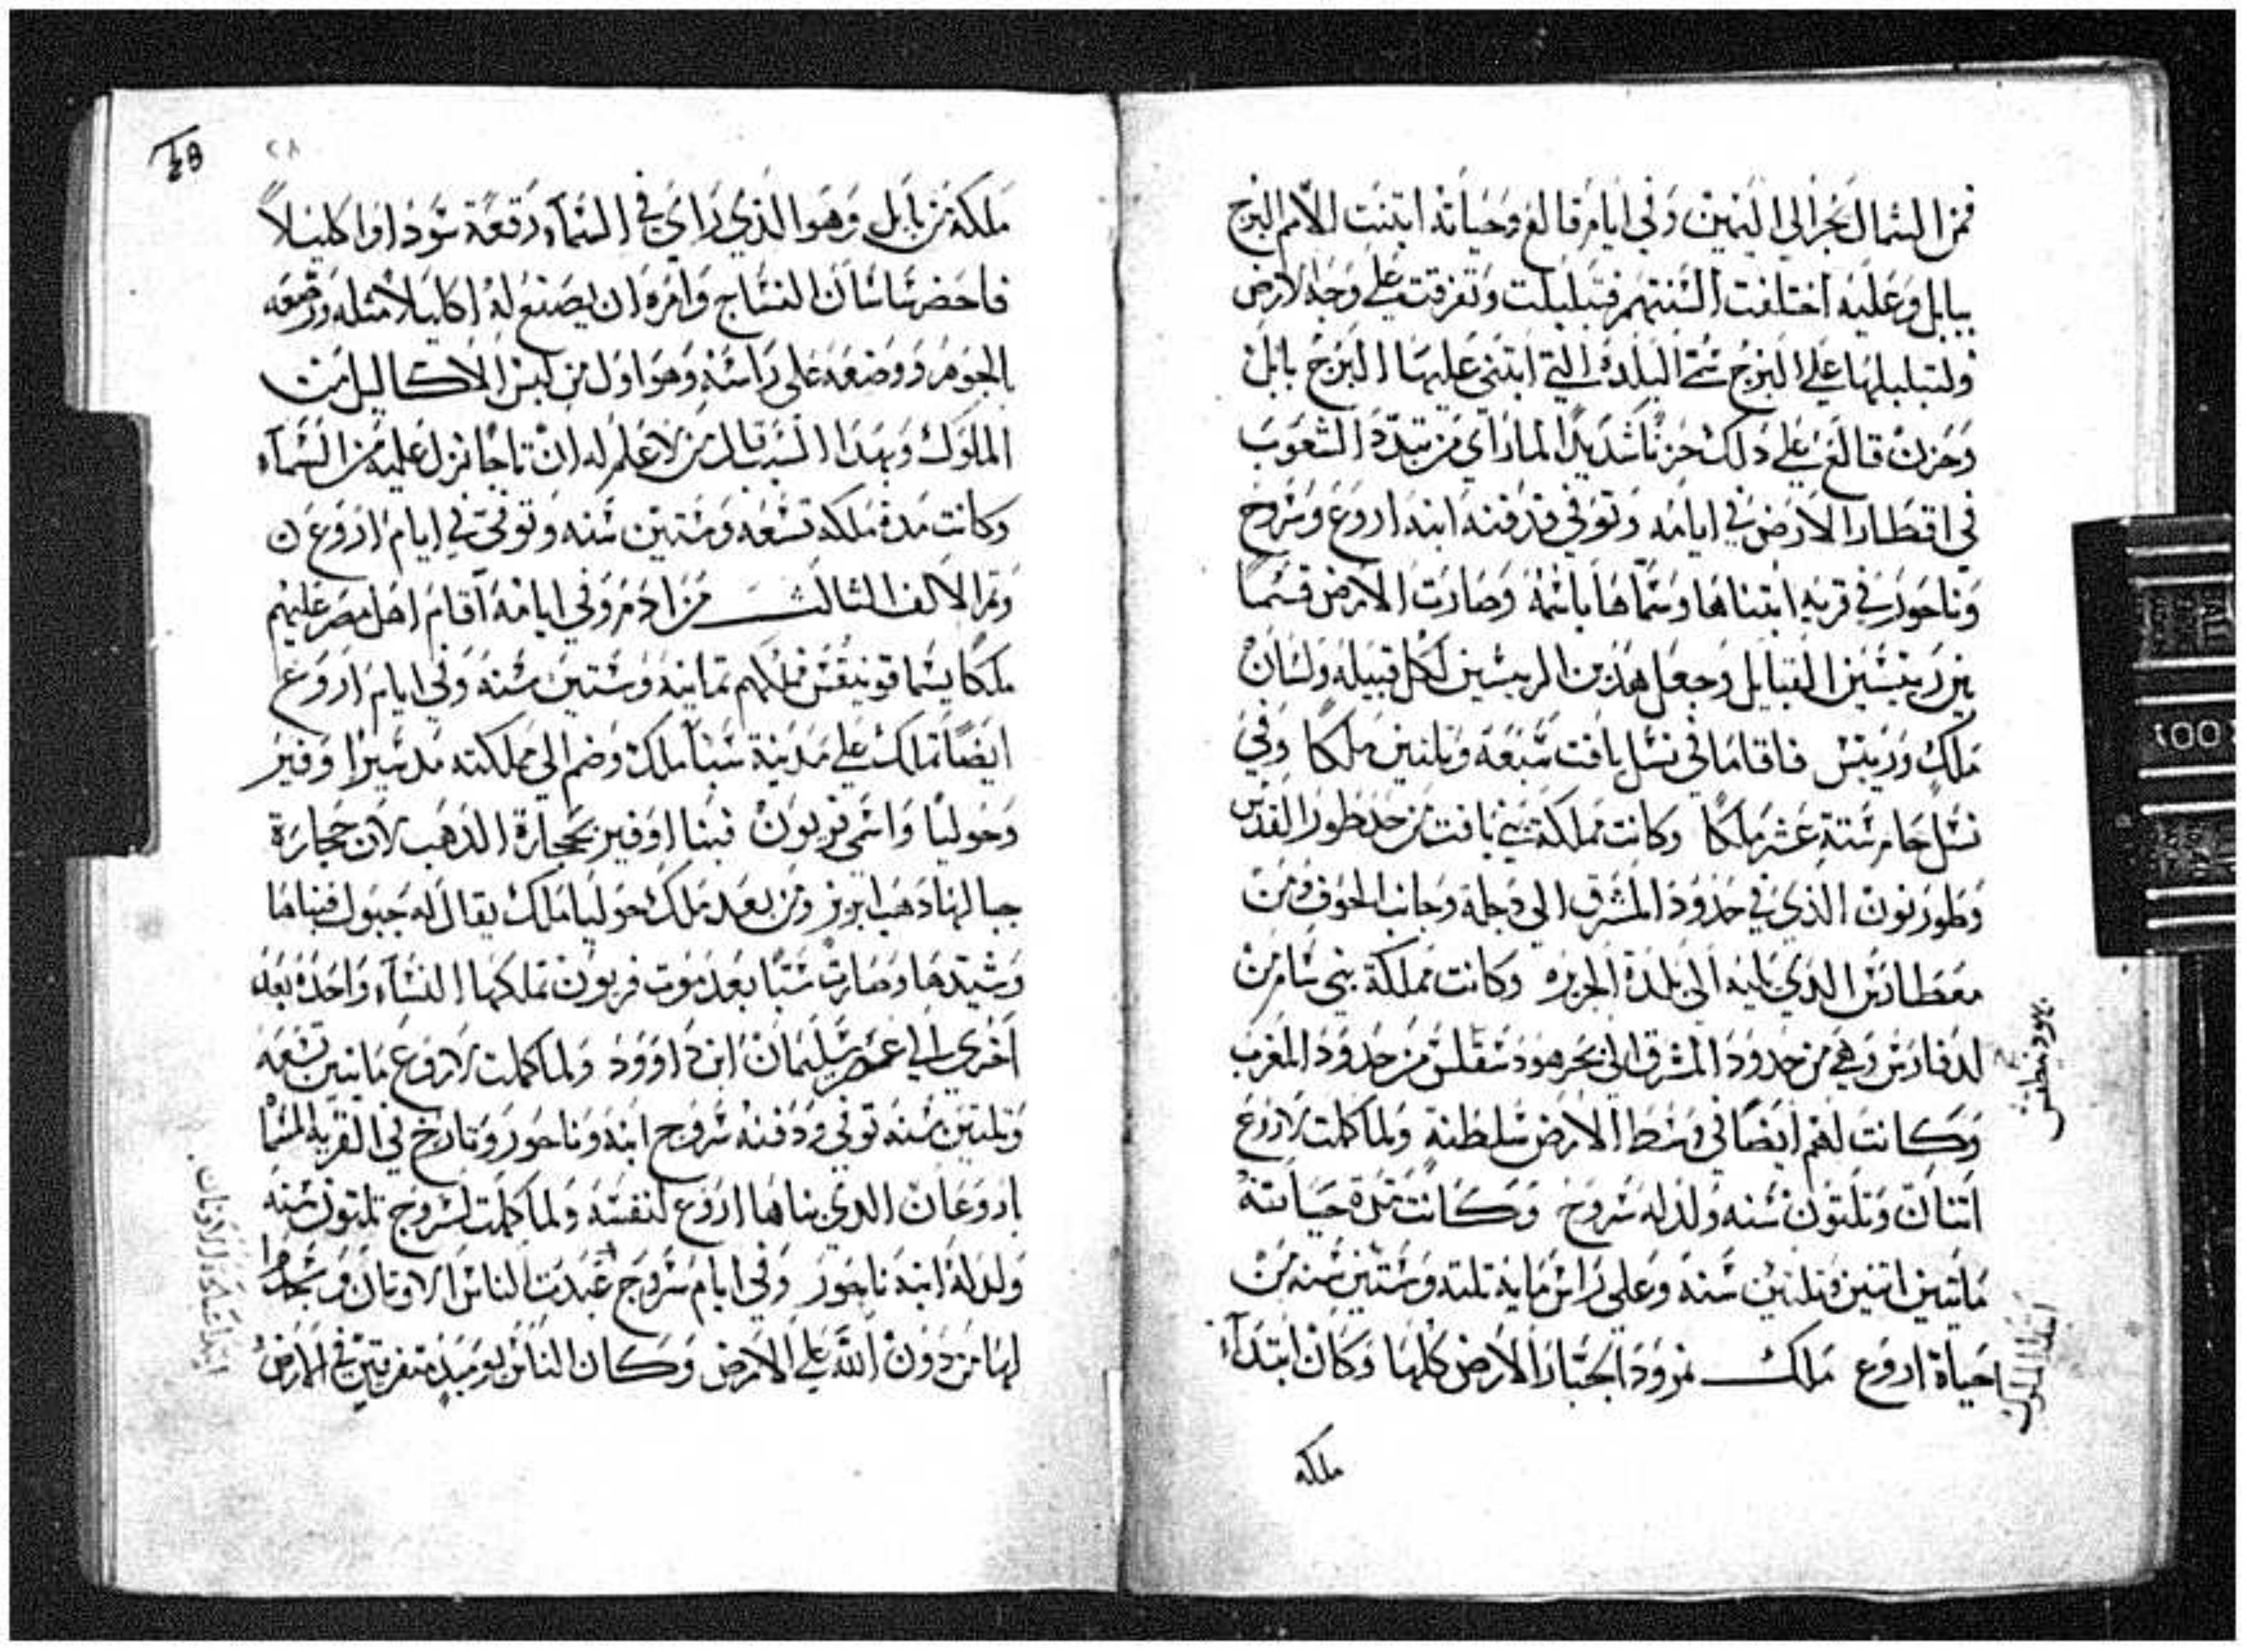 فمن الشمال نجرا الى اليمين وفي ايام فالغ وحياته ابتنت الامم البرج
ببابل وعليه اختلفت السنتهم فتبلبلت وتفرقت على وجه الارض
ولتبلبلها على البرج سمي البلده التي ابتنى عليها البرج بابل
وحزن فالغ على دلك حزنا شديدا لما راي من تبدد الشعوب
في اقطار الارض في ايامه وتوفي فدفنه ابنه اروع وسروج
وناحور في قريه ابتناها وسماها باسمه وصارت الارض قسما
بين رييسين القبايل وجعل هدين الرييسين لكل قبيله ولسان
ملك ورييس فاقاما في نسل يافت سبعه وتلتين ملكا وفي
نسل حام ستة عشر ملكا وكانت مملكة بني يافت من حد طور القدس
وطور نون الذي في حدود المشرق الى دجلة وجانب الجوف ومن
معطادس الدي يليه الى بلدة الجزيره وكانت مملكة بني سام من
لدفارس وهي من حدود المشرق الى بحر هودسقلس من حدود المغرب
وكانت لهم ايضا في وسط الارض سلطنة ولما كملت لاروع
اتنان وتلتون سنه ولد له سروج وكانت مدة حياته
ماتين اتنين وتلتين سنة وعلى راس مايه تلته وستين سنه من
حياة اروع ملك نمرود الجبار الارض كلها وكان ابتداء
ملكه
ابتدا الملوك
48
٢٨
ملكه من بابل وهو الذي راي في السماء رقعة سودا واكليلاً
فاحضر ساسان النساج وامره ان يصنع له اكليلا مثله ورصعه
بالجوهر ووضعه على راسه وهو اول من لبس الاكاليل من
الملوك وبهدا السبب قال من لا علم له ان تاجا نزل عليه من السماء
وكانت مدة ملكه تسعه وستين سنه وتوفي في ايام اروع ن
وتم الالف الثالث من ادم وفي ايامه اقام اهل مصر عليهم
ملكا يسما فونيقس ملكهم تمانيه وستين سنه وفي ايام اروع
ايضا تملك على مدينة سبا ملك وضم الى مملكته مدينيرا وفير
وحوليا واسمي فربون فبنا اوفير بحجارة الدهب لان حجارة
جبالها دهب ابريز ومن بعد ملك حوليا ملك يقال له جبول فبناها
وشيدها وصارت سبا بعد موت فربون تملكها النساء واحده بعد
اخري الى عصر سليمان ابن داوود ولما كملت لاروع ماتين تسعه
وتلتين سنه توفي ودفنه سروج ابنه وناحور وتارخ في القريه المسما
اروعان الدي بناها اروع لنفسه ولما كملت لسروج تلتون سنه
ولد له ابنه ناحور وفي ايام سروج عبدت الناس الاوتان وسجدوا
لها من دون الله على الارض وكان الناس يوميد متفرقين في الارض
ابتدا عبادة الاوتان